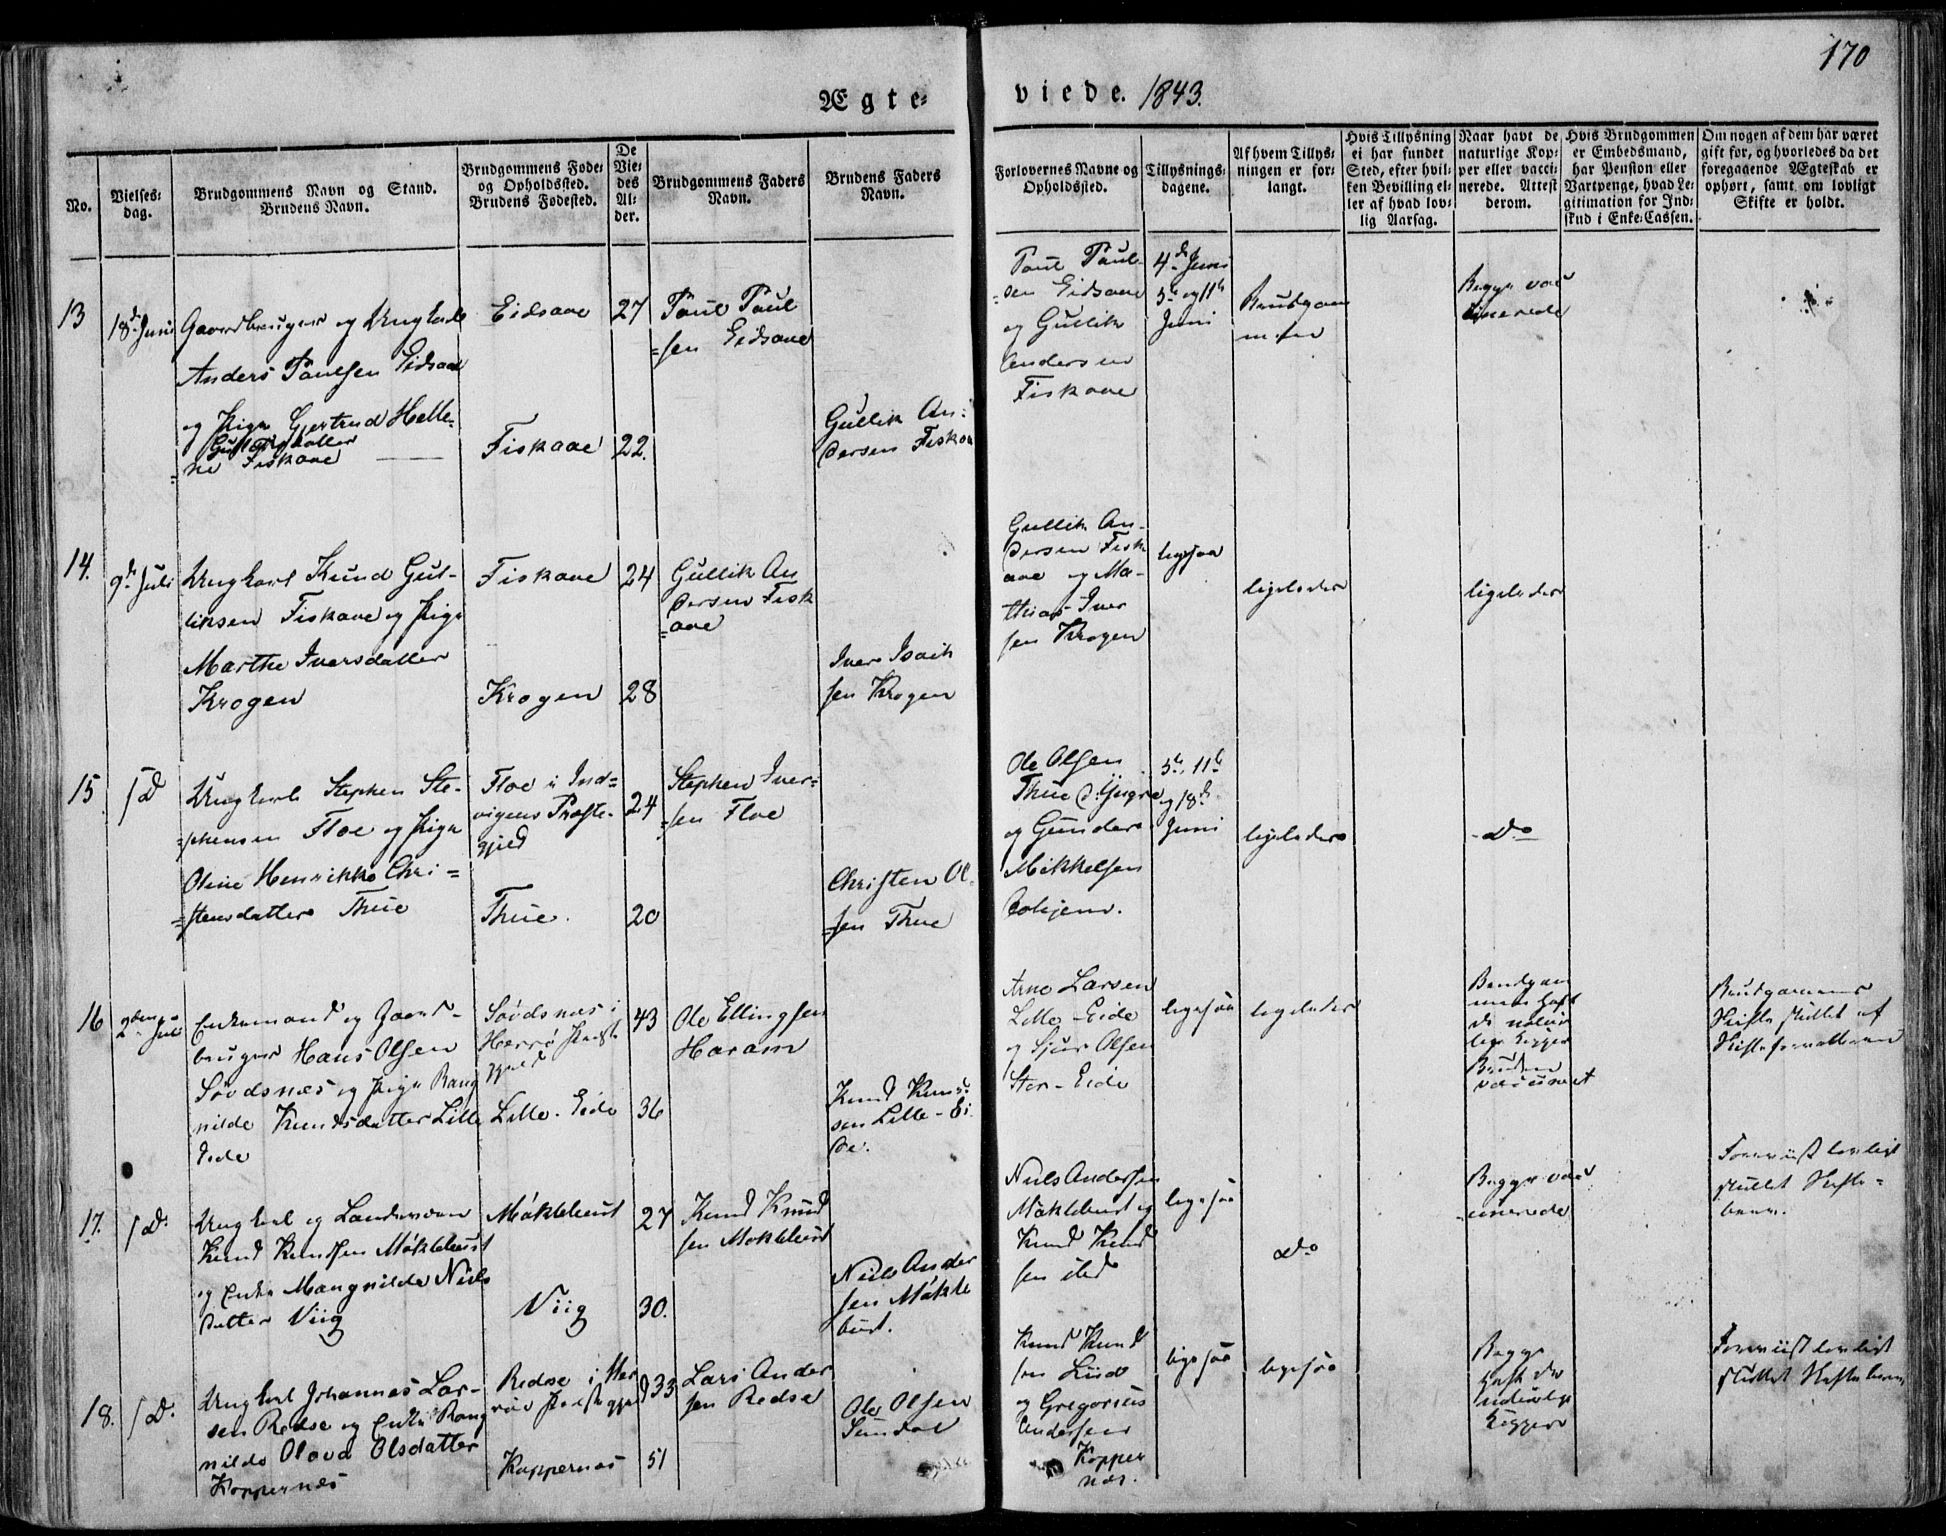 170
Ægte-
viede. 1843.
No.
Vielses-
dag.
Brudgommens Navn og Stand.
Brudens Navn.
Brudgommens Føde-
og Opholdssted.
Brudens Fødested.
De
Vie-
des
Al-
der.
Brudgommens Faders
Navn.
Brudens Faders
Navn.
Forlovernes Navne og
Opholdssted.
Tillysnings-
dagene.
Af hvem Tillys-
ningen er for-
langt.
Hvis Tillysning
ei har fundet
Sted, efter hvil-
ken Bevilling el-
ler af hvad lov-
lig Aarsag.
Naar havt de
naturlige Kop-
per eller vacci-
nerede. Attest
derom.
Hvis Brudgommen
er Embedsmand,
har Pension eller
Vartpenge, hvad Le-
gitimation for Ind-
skud i Enke-Cassen.
Om nogen af dem har været
gift før, og hvorledes da det
foregaaende Ægteskab er
ophørt, samt om lovligt
Skifte er holdt.
13
18de Juni
Gaardbruger og Ungkarl
Anders Paulsen Eidsaae
og Pige Gjertrud Helle-
Gulliksdatter
=ne Fiskaae
Eidsaae
Fiskaae
27
22.
Paul Paul
=sen Eidsaae
Gullik An-
dersen Fiskaae
Paul Paul-
=sen Eidsaae
og Gullik
Andersen
Fiskaae
4de Juni
5te og 11te
Juni
Brudgom
men
Begge vac
cinerede
14.
9de Juli
Ungkarl Knud Gul-
liksen Fiskaae og Pige
Marthe Iversdatter
Krogen
Fiskaae
Krogen
24
28
Gullik An
dersen Fisk
=aae
Iver Isach
sen Krogen
Gullik An-
dersen Fisk
aae og Ma-
thias Iver
sen Krogen
ligesaa
ligeledes
ligeledes
15
s D
Ungkarl Stephen Ste-
=phensen Floe og Pige
Oline Henrikke Chri=
=stensdatter Thue
Floe i Ind=
vigens Præste-
gjeld
Thue.
24
20
Stephen Iver=
=sen Floe
Christen Ol-
=sen Thue
Ole Olsen
Thue
og Gunder
Mikkelsen
5te, 11te
og 18de
Juni
ligeledes
do
16
2den Juli
Enkemand og Gaard-
bruger Hans Olsen
Søvdsnæs og Pige Rang
nilde Knudsdatter Lille
Eide
Søvdsnæs i
Herrø Præste
gjeld
Lille-Eide
43
36
Ole Ellingsen
Haram
Knud Knud-
sen Lille-Ei
de.
Arne Larsen
Lille-Eide
og Sjur Olsen
Stor-Eide
ligesaa
ligeledes
Brudgom
men haft
de natur
lige Kopper
Bruden
vaccineret
Brudgommens
Skifte sluttet af
Skifteforvalteren
17.
s D.
Ungkarl og Landeværn
Knud Knudsen Møklebust
og Enke Mangnilde Niels
datter Viig
Møklebust
Viig
27
30.
Knud Knud
sen Møklebust
Niels Ander
sen Møkle
bust.
Niels Andersen
Møklebust og
Knud Knud
sen ibid
ligesaa
do
Begge vac
cinerede
Foreviist lovligt
sluttet Skifte=
brev.
18.
s D.
Ungkarl Johannes Lar-
sen Redse og Enke Rang
nilde Olava Olsdatter
Koppernæs
Redse i Her
røe Præstegjeld
Koppernæs
33
51
Lars Ander
sen Redse
Ole Olsen
Sundal
Knud Knud
sen Liid
og Gregorius
Andersen
Kopper
næs.
ligesaa
ligesaa
Begge
haft de
naturlige
Kopper
Foreviist lovligt
sluttet Skiftebrev